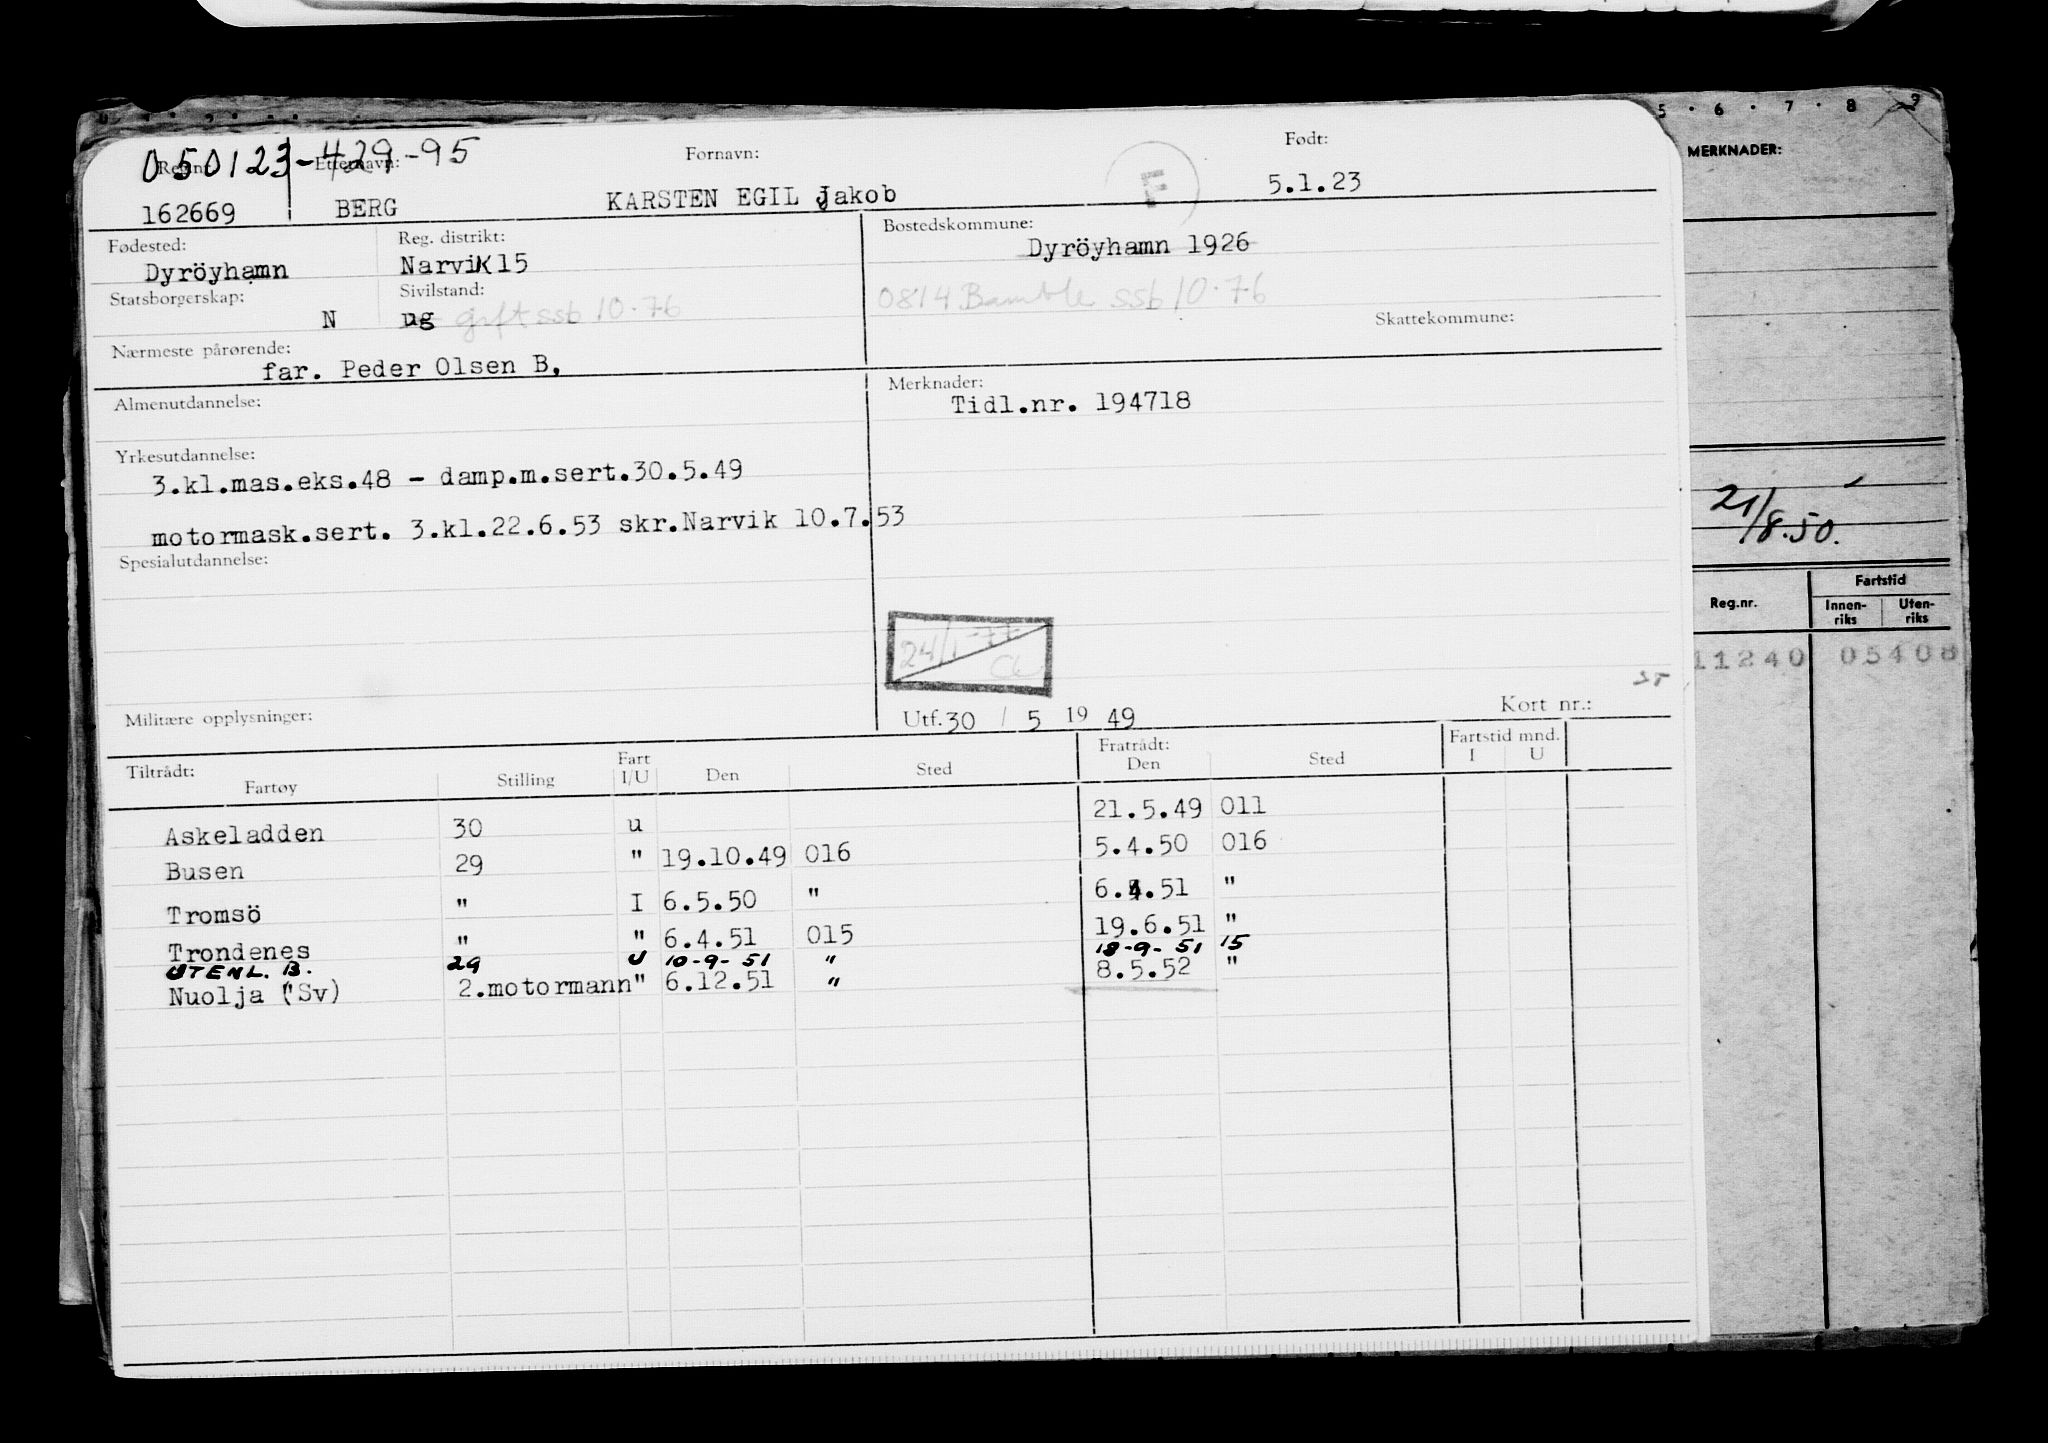 5 · 6 · 7 · 8 · 9
MERKNADER:
21/8.50.
Reg.nr. Fartstid
Innen-riks Uten-riks
11240 05408
050123-429-95
Etternavn: Fornavn: Født:
162669 BERG KARSTEN EGIL Jakob E 5.1.23
Fødested: Reg. distrikt: Bostedskommune:
Dyröyhamn Narvik15 Dyröyhamn 1926
Statsborgerskap: Sivilstand: 0814 Bamble ssb 10.76
N ug gift ssb 10.76 Skattekommune:
Nærmeste pårørende:
far. Peder Olsen B,
Almenutdannelse: Merknader:
Tidl.nr. 194718
Yrkesutdannelse:
3.kl.mas.eks.48 - damp.m.sert.30.5.49
motormask.sert. 3.kl.22.6.53 skr.Narvik 10.7.53
Spesialutdannelse:
24/1-77
Militære opplysninger: Utf.30 / 5 19 49 Kort nr.:
Tiltrådt: Fratrådt: Fartstid mnd.
Fartøy Stilling Fart I/U Den Sted Den Sted I U
Askeladden 30 u 21.5.49 011
Busen 29 " 19.10.49 016 5.4.50 016
Tromsö " I 6.5.50 " 6.4.51 "
Trondenes " " 6.4.51 015 19.6.51 "
UTENL. B. 29 U 10-9-51 " 18-9-51 15
Nuolja (Sv) 2.motormann " 6.12.51 " 8.5.52 "